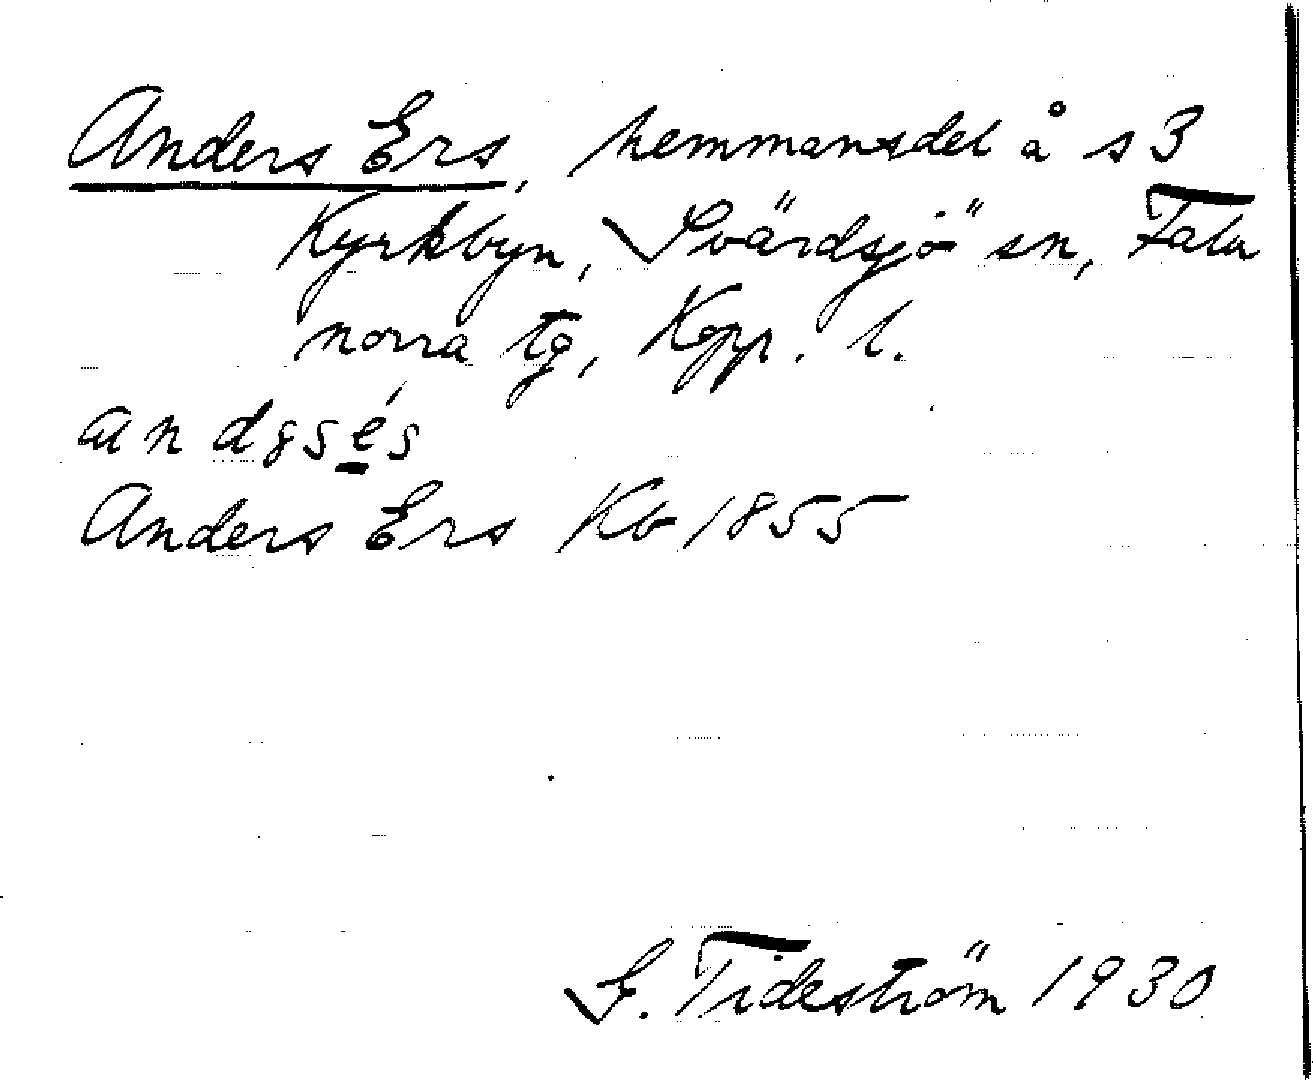 Anders Ers, hemmansdel å s 3
Kyrkbyn, Svärdsjö sn, Falu
norra tg, Kopp. l.
andɞsés
Anders Ers Kb 1855
G. Tideström 1930